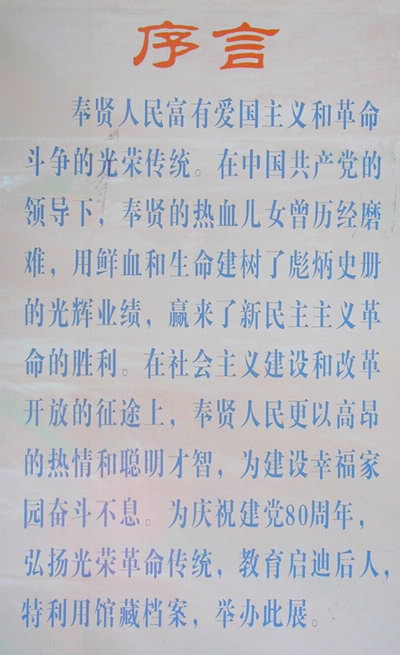 序言
奉贤人民富有爱国主义和革命
斗争的光荣传统。在中国共产党的
领导下，奉贤的热血儿女曾历经磨
难，用鲜血和生命建树了彪炳史册
的光辉业绩，赢来了新民主主义革
命的胜利。在社会主义建设和改革
开放的征途上，奉贤人民更以高昂
的热情和聪明才智，为建设幸福家
园奋斗不息。为庆祝建党80周年，
弘扬光荣革命传统，教育启迪后人，
特利用馆藏档案，举办此展。